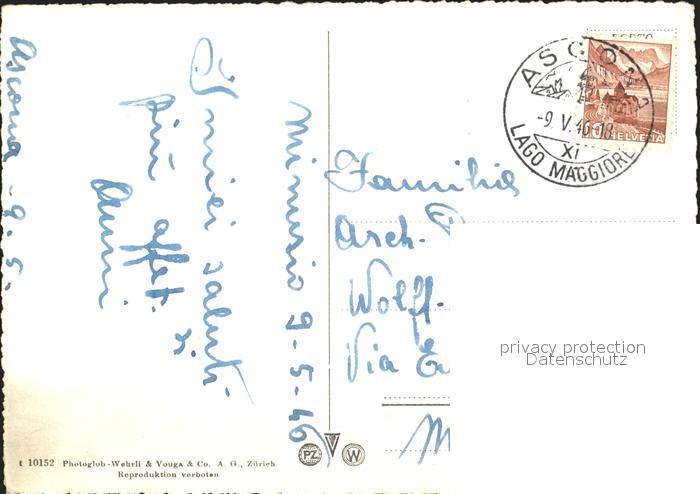 Ascona - 9. 5.
I miei saluti
più affet.
Minusio 9-5-46
Familia
Arch.
Wolff-
Via
M
ASCONA
-9. V. 46-18
XI
LAGO MAGGIORE
HELVETIA
privacy protection
Datenschutz
PZ
W
t 10152 Photoglob-Wehrli & Vouga & Co. A. G., Zürich
Reproduktion verboten